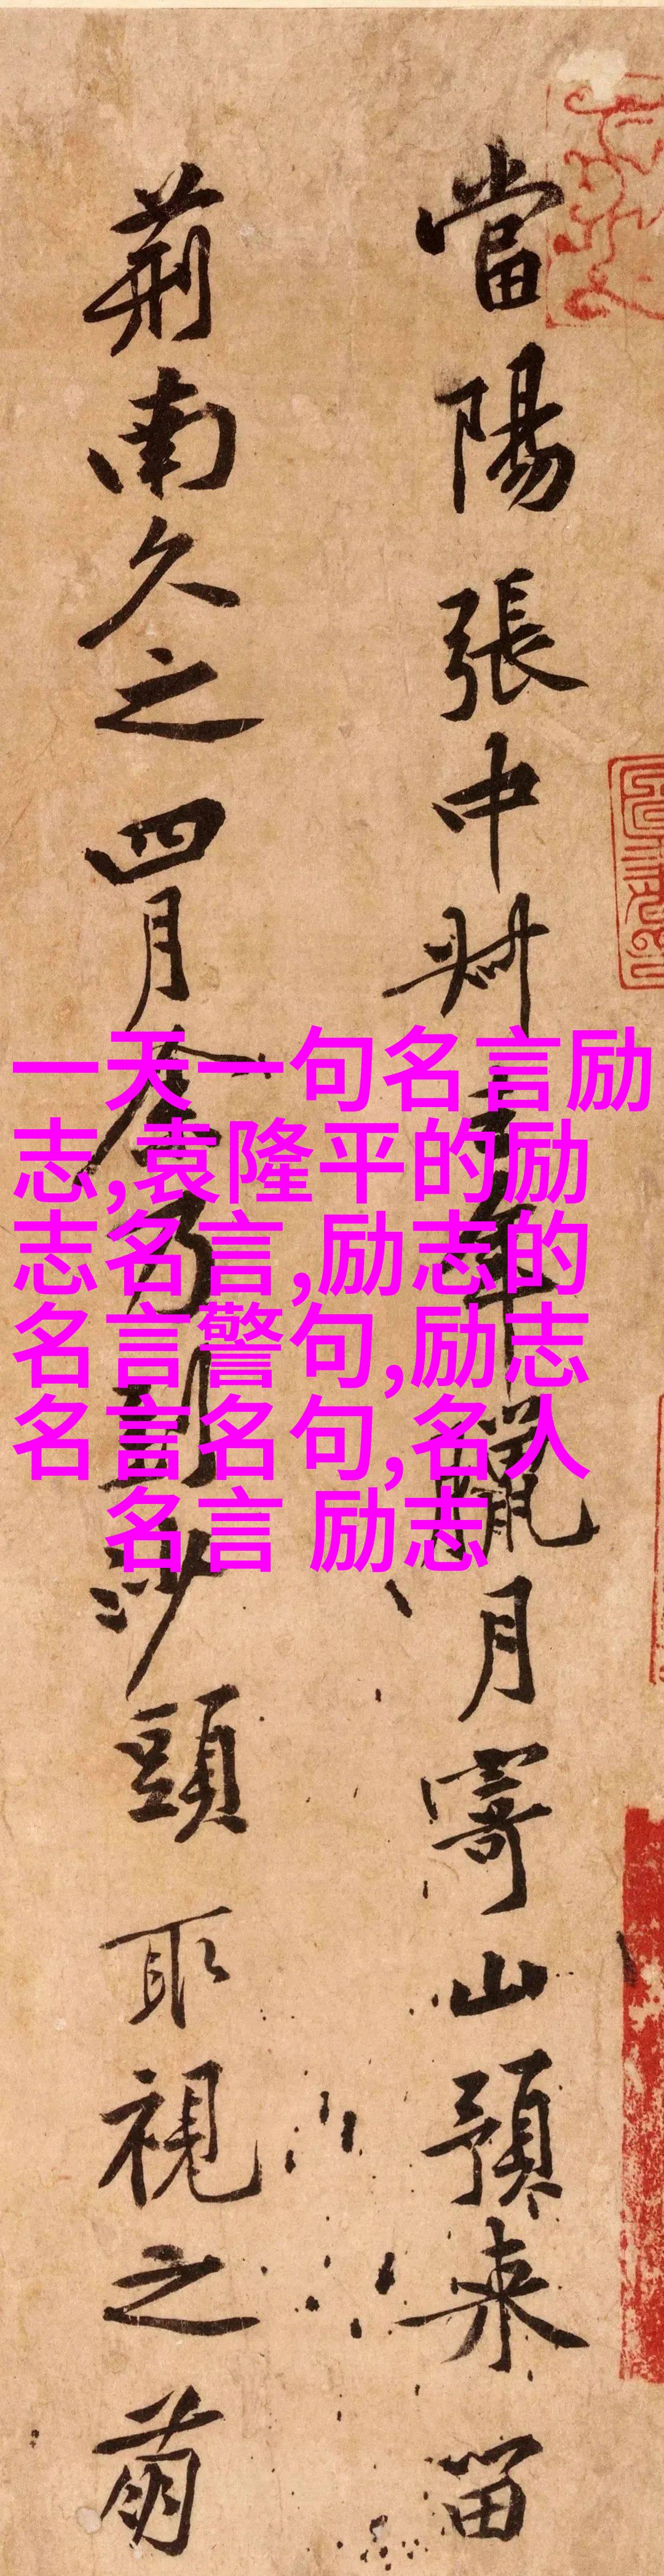 當陽張中叔去年臘月寄山預来留
荊南久之四月余乃到沙頭取視之萌
一天一句名言励
志,袁隆平的励
志名言,励志的
名言警句,励志
名言名句,名人
名言 励志